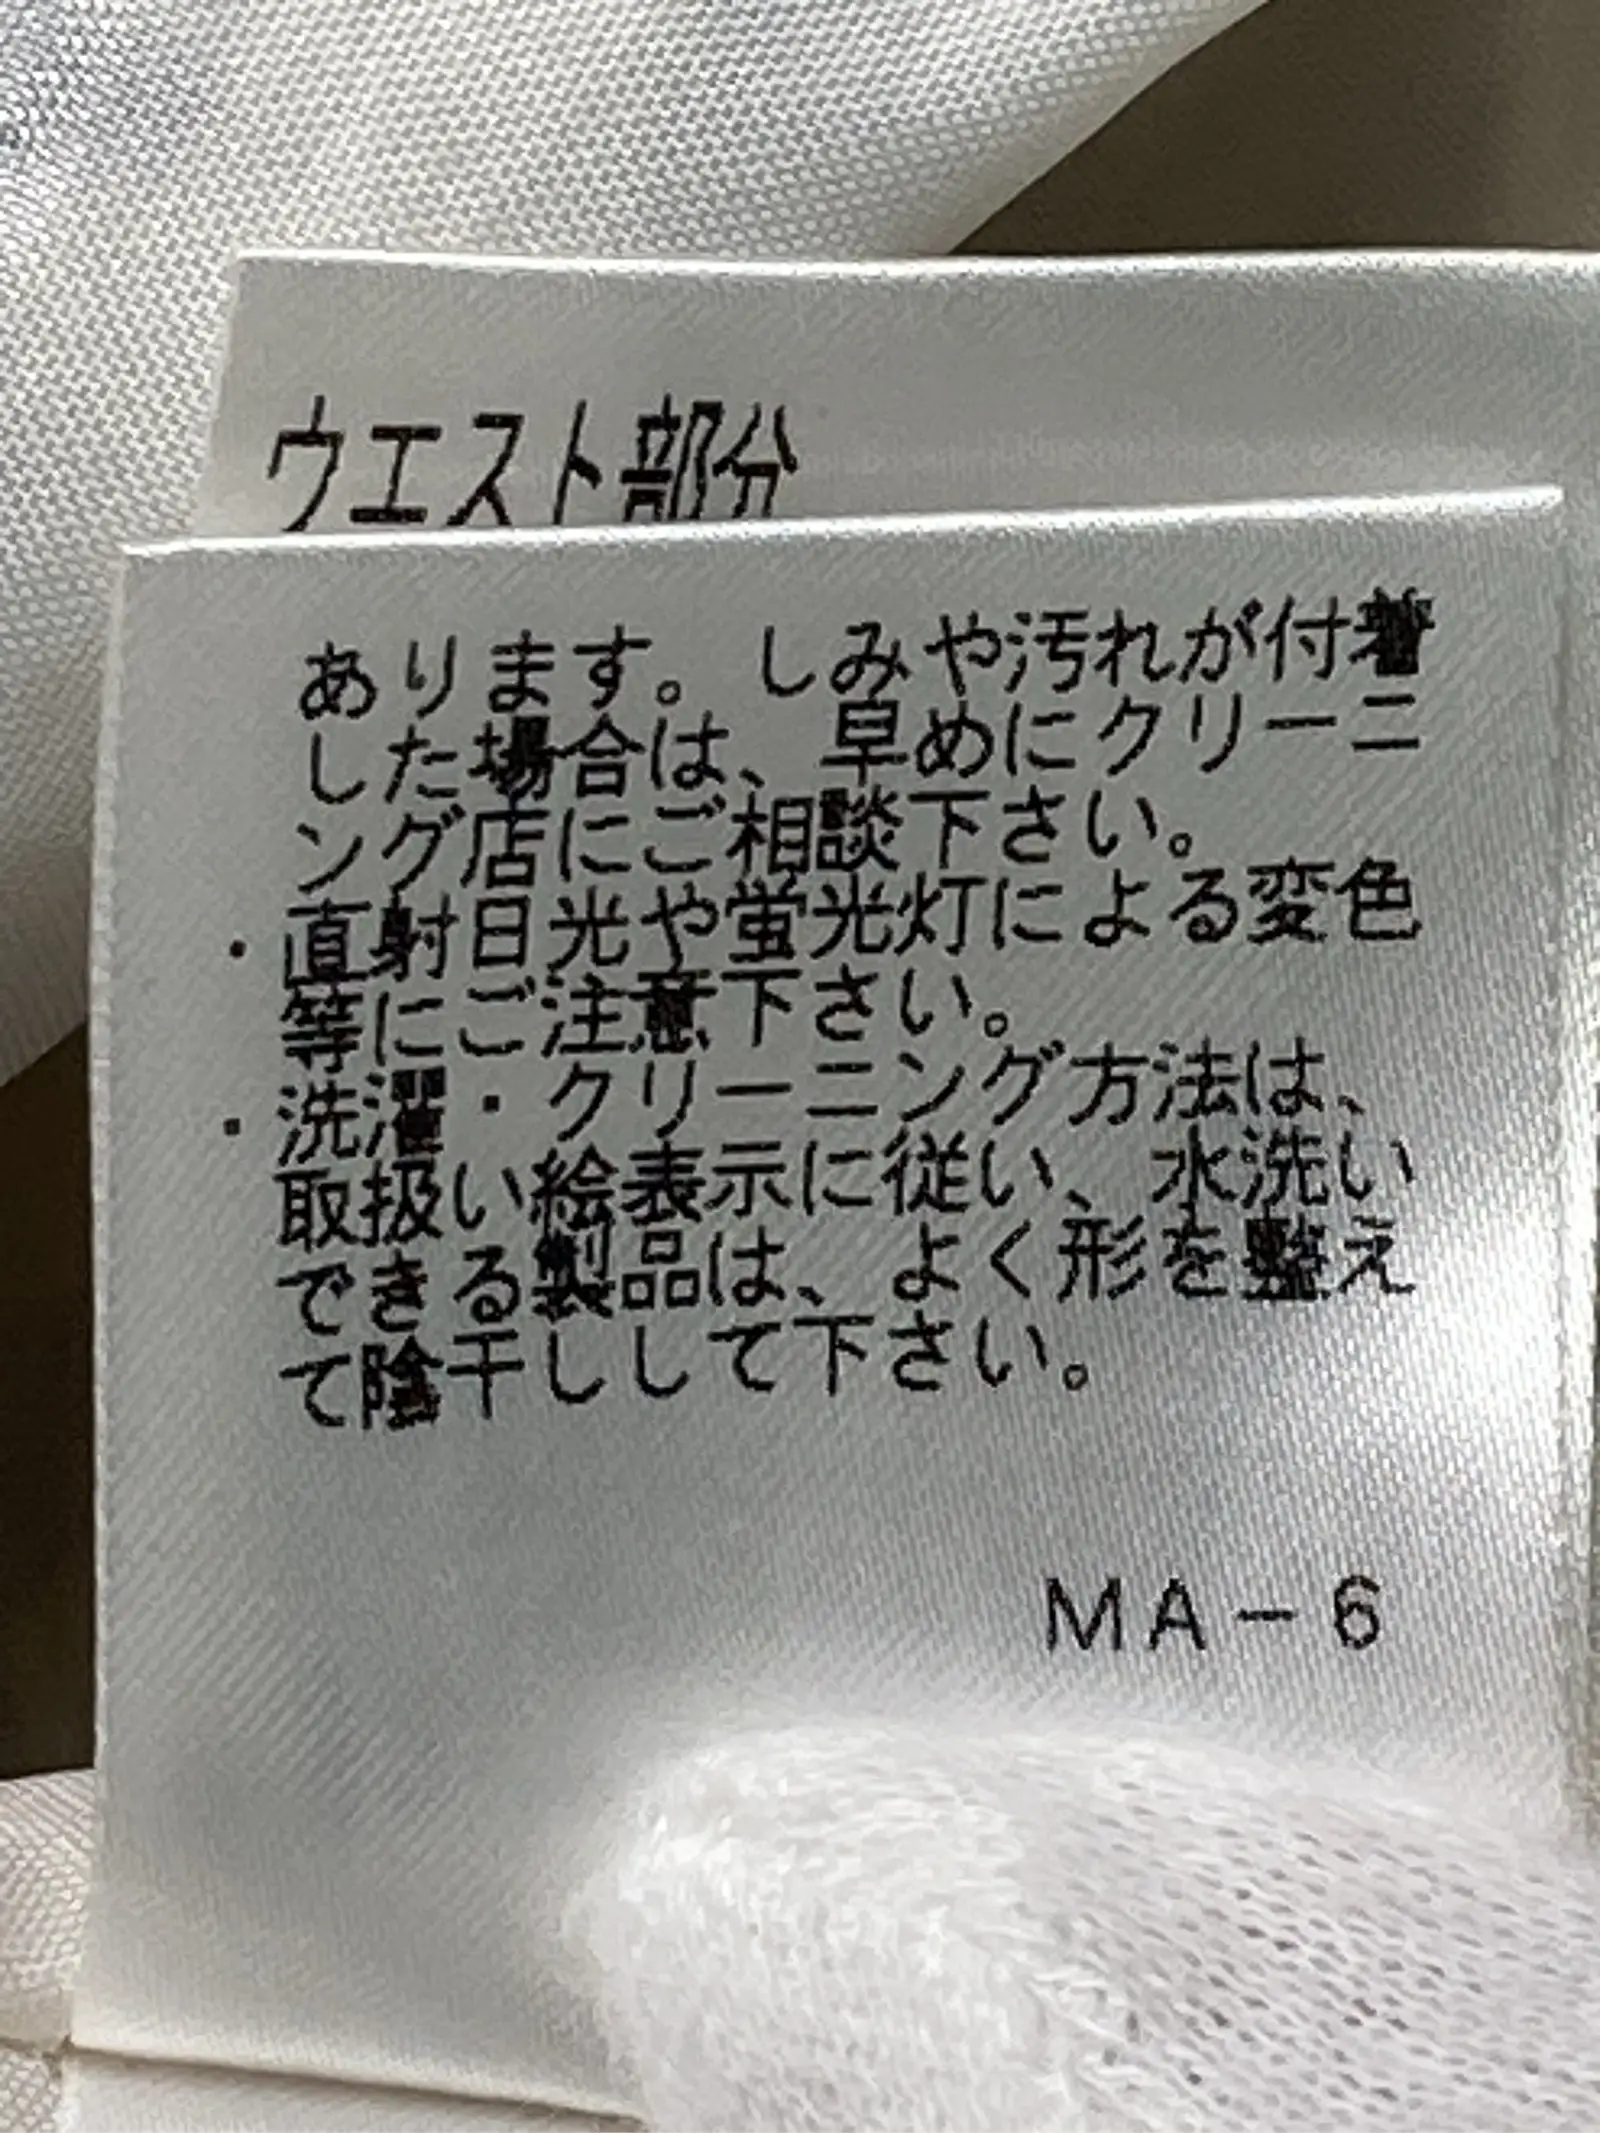 ウエスト部分
あります。しみや汚れが付着
した場合は、早めにクリーニ
ング店にご相談下さい。
・直射日光や蛍光灯による変色
等にご注意下さい。
・洗濯・クリーニング方法は、
取扱い絵表示に従い、水洗い
できる製品は、よく形を整え
て陰干しして下さい。
MA-6